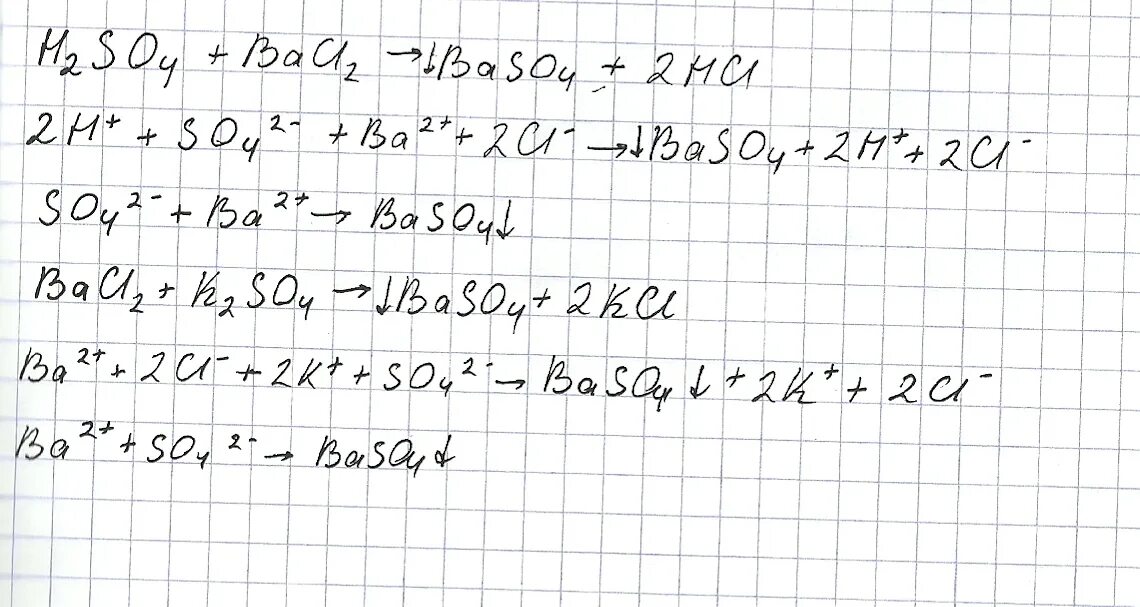 H₂SO₄ + BaCl₂ →↓BaSO₄ + 2HCl
2H⁺ + SO₄²⁻ + Ba²⁺ + 2Cl⁻ →↓BaSO₄ + 2H⁺ + 2Cl⁻
SO₄²⁻ + Ba²⁺ → BaSO₄↓
BaCl₂ + K₂SO₄ →↓BaSO₄ + 2KCl
Ba²⁺ + 2Cl⁻ + 2K⁺ + SO₄²⁻ → BaSO₄↓ + 2K⁺ + 2Cl⁻
Ba²⁺ + SO₄²⁻ → BaSO₄↓